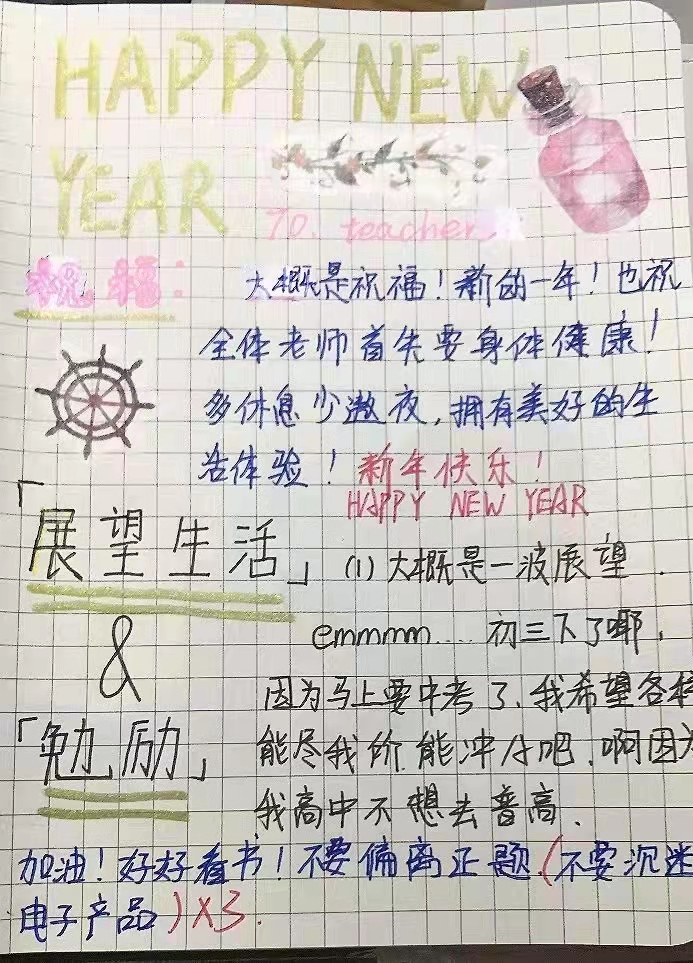 HAPPY NEW
YEAR
To. teacher
祝福：
大概是祝福！新的一年！也祝
全体老师首先要身体健康！
多休息少熬夜，拥有美好的生
活体验！新年快乐！
HAPPY NEW YEAR
「展望生活」
(1) 大概是一波展望.
&
emmmm.... 初三下了哪,
因为马上要中考了、我希望各
「勉励」
能尽我所能冲分吧、啊因为
我高中不想去普高.
加油！好好看书！不要偏离正题.(不要沉迷
电子产品)×3.